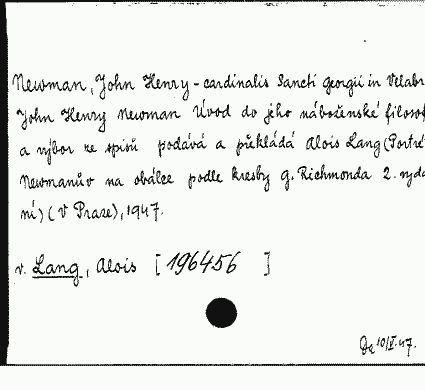 Newman, John Henry - cardinalis Sancti Georgii in Velabr
John Henry Newman Úvod do jeho náboženské filosof
a výbor ze spisů podává a překládá Alois Lang (Portré
Newmanův na obálce podle kresby G. Richmonda 2. vydá
ní) (V Praze), 1947.
v. Lang, Alois [196456 ]
De 10/V.47.